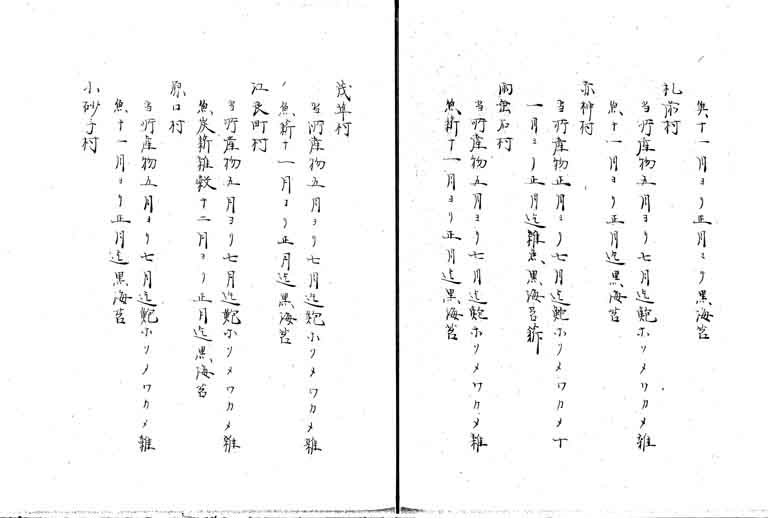 魚十一月ヨリ正月ヨリ黒海苔
札前村
当所産物五月ヨリ七月迄鮑ホソメワカメ雑
魚十一月ヨリ正月迄黒海苔
赤神村
当所産物正月ヨリ七月迄鮑ホソメワカメ十
一月ヨリ正月迄雑魚黒海苔薪
雨垂石村
当所産物五月ヨリ七月迄鮑ホソメワカメ雑
魚薪十一月ヨリ正月迄黒海苔
茂草村
当所産物五月ヨリ七月迄鮑ホソメワカメ雑
魚薪十一月ヨリ正月迄黒海苔
江良町村
当所産物五月ヨリ七月迄鮑ホソメワカメ雑
魚炭薪雑穀十二月ヨリ正月迄黒海苔
原口村
当所産物五月ヨリ七月迄鮑ホソメワカメ雑
魚十一月ヨリ正月迄黒海苔
小砂子村